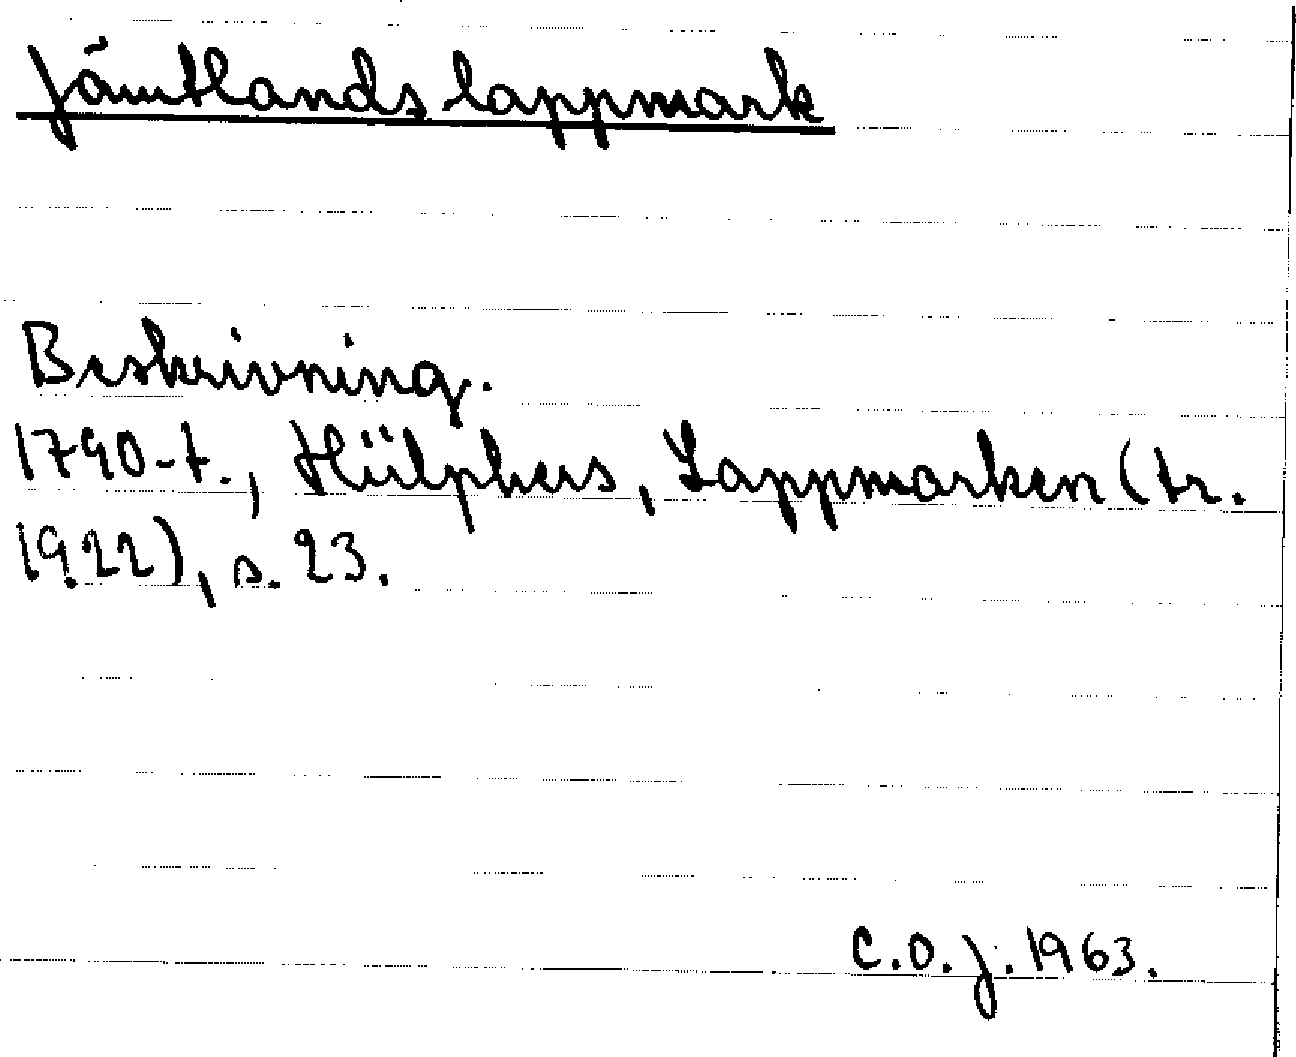 Jämtlands lappmark
Beskrivning.
1790-t., Hülphers, Lappmarken (tr.
1922), s. 23.
C.O.J. 1963.